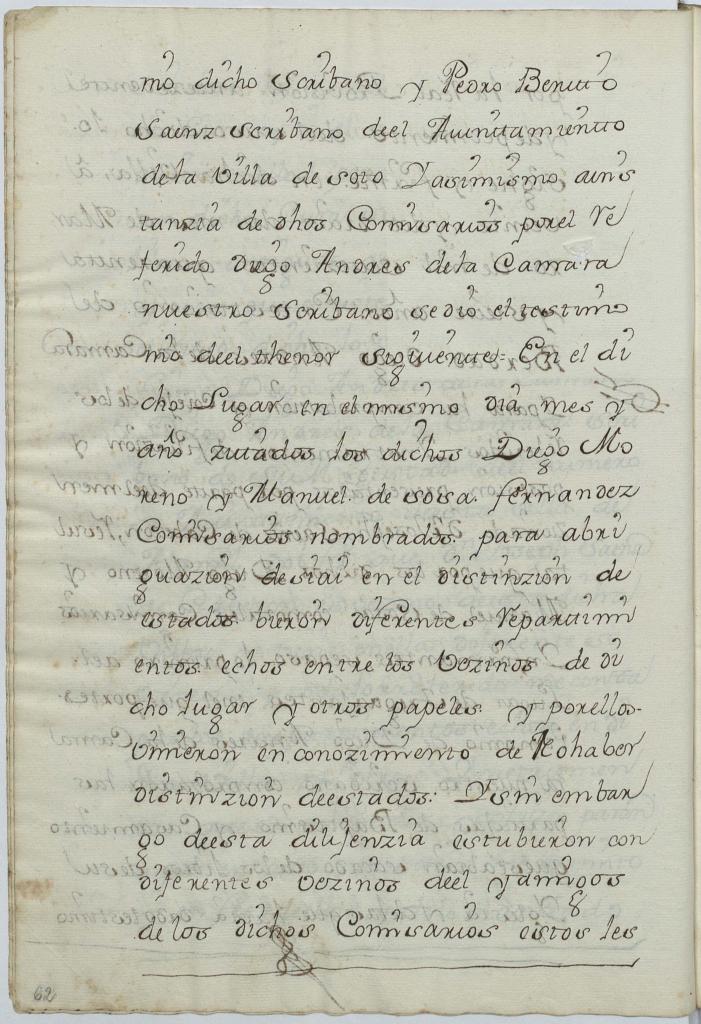 mo dicho Scribano y Pedro Benitto
Saenz Scribano deel Aiunttamientto
dela Villa de soto Yasimismo ains
tanzia de dhos Comisarios porel Re
ferido Diego Andres dela Camara
nuestro Scribano sedio el testimo
mo deel thenor siguiente = En el di
cho Lugar en el mismo dia mes y
año zitados los dichos Diego Mo
reno y Manuel de sosa fernandez
Comisarios nombrados para abri
guazion desiai en el distinzion de
estados bieron diferentes Repartimi
entos echos entre los Vezinos de di
cho lugar y otros papeles y porellos
Vinieron en conozimiento de Nohaber
distinzion deestados: Ysin embar
go deesta dilijenzia estubieron con
diferentes vezinos deel yamigos
de los dichos Comisarios estos les
62